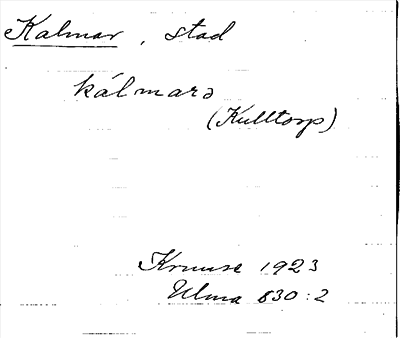 Kalmar, stad
kálmarə
(Kulltorp)
Kruuse 1923
Ulma 830:2